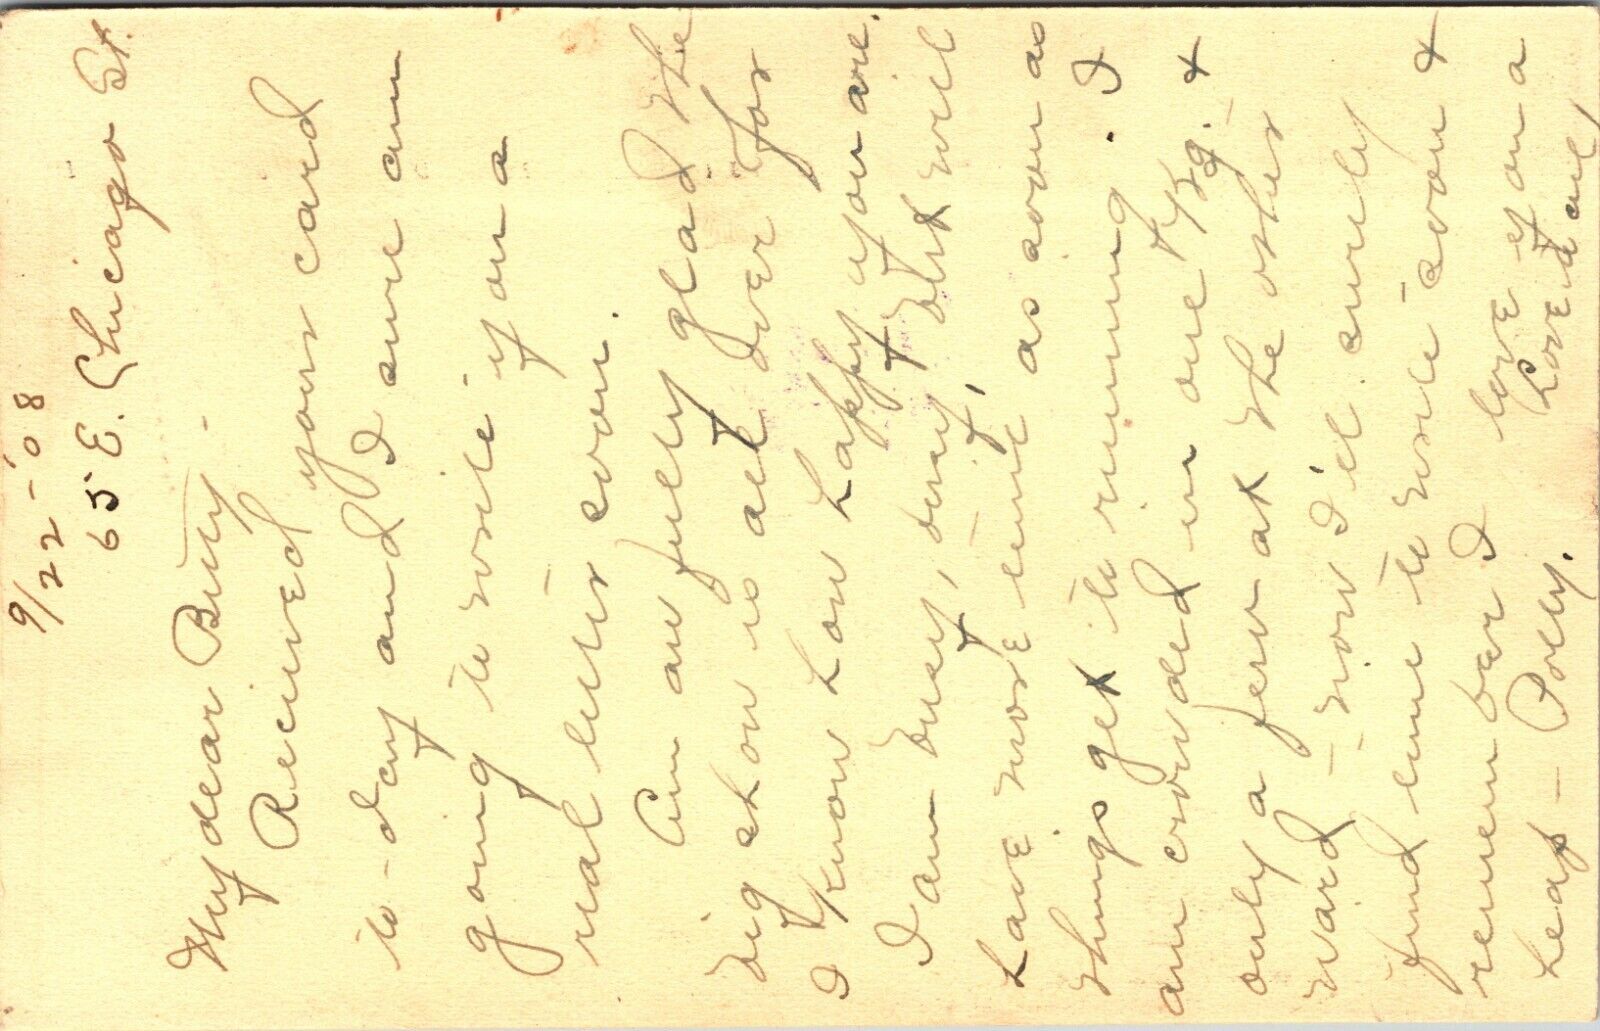 9/22-'08
65 E. Chicago St.
My dear Billy-
Received your card
to-day and I sure am
going to write you a
real letter soon.
Am awfully glad the
big show is all over for
I know how happy you are.
I am busy, busy, but will
have more time, as soon as
things get to running. I
am crowded in one bldg. &
only a few at the other
ward - now I'll surely
find time to write soon &
remember I love you a
heap - Polly.
Love to all,